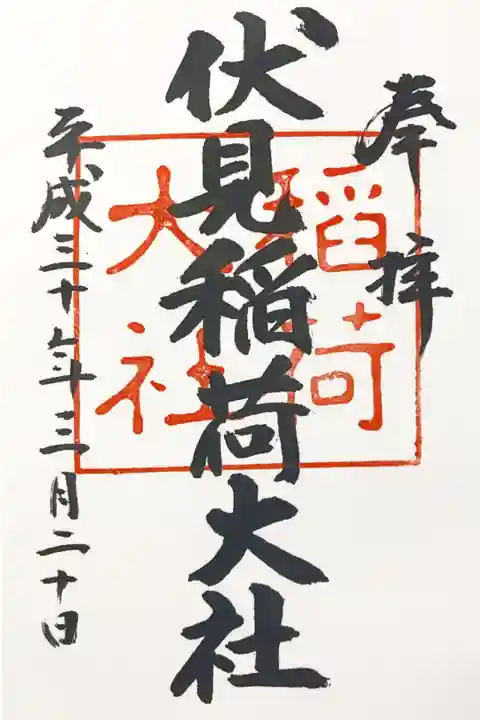 奉拝
伏見稲荷大社
稲荷
大社
平成三十年三月二十日